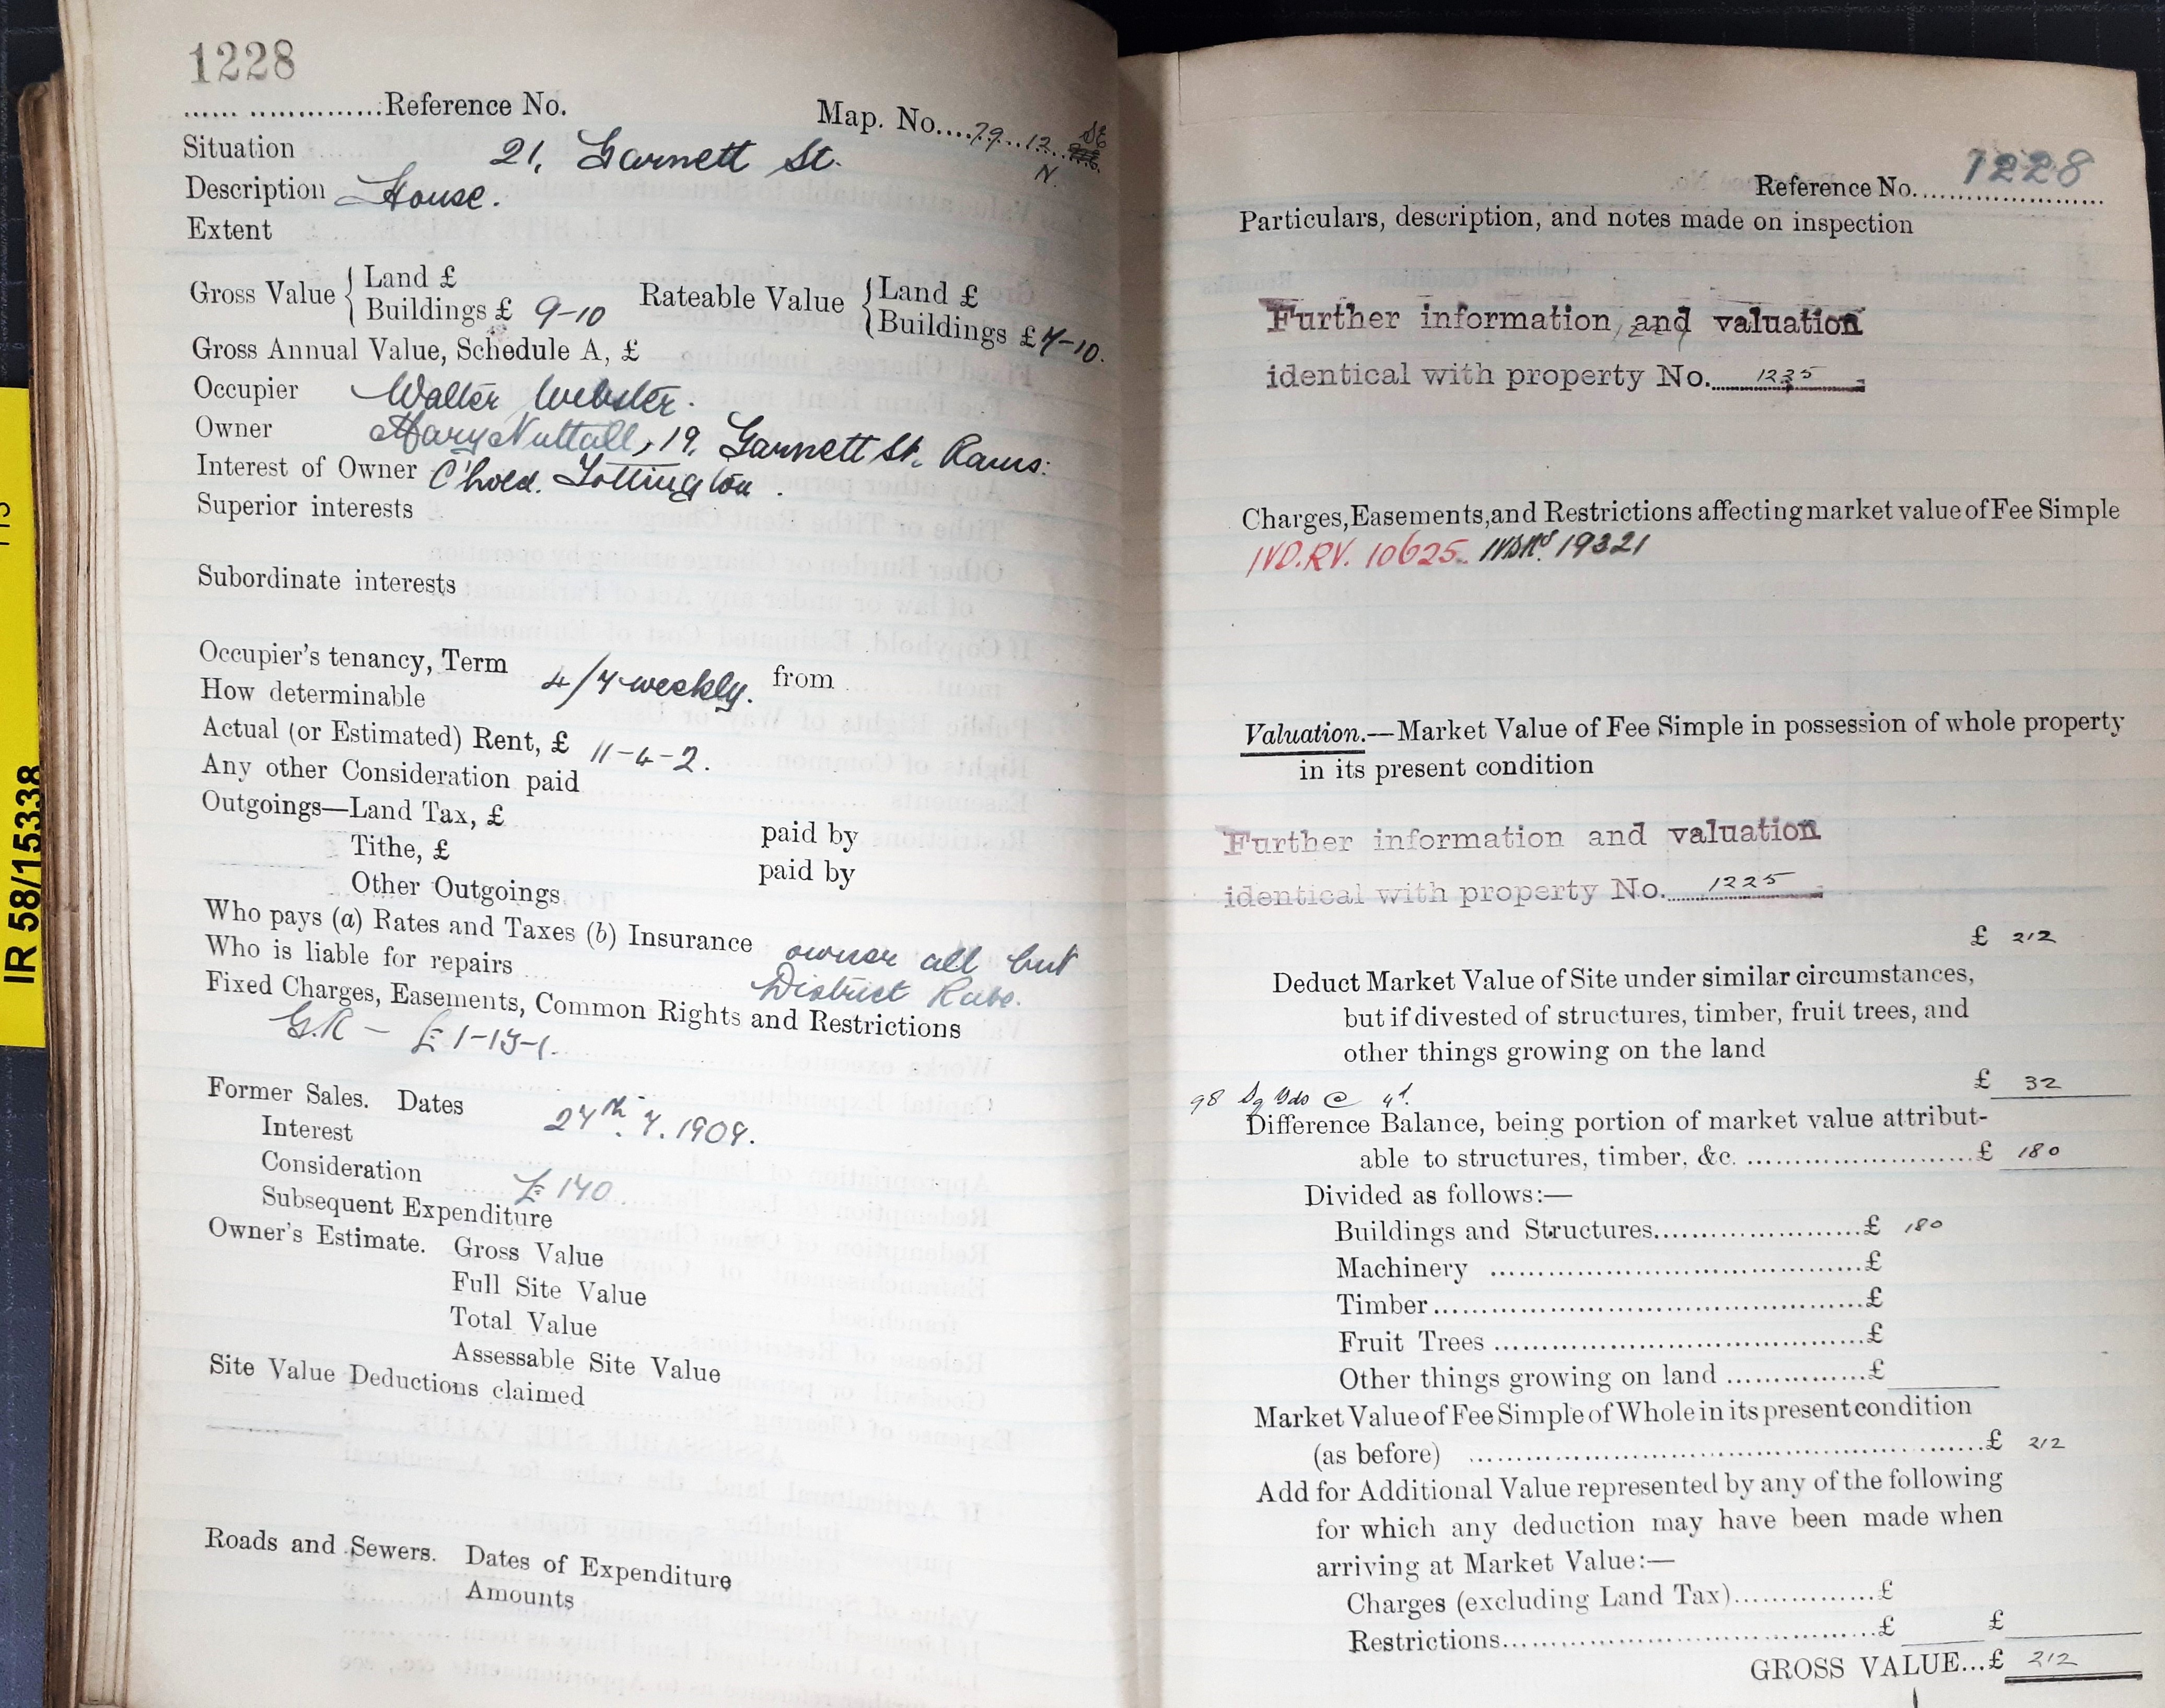 1228
...... ...............Reference No.
Map. No....79...12... SE
N.
Situation 21, Garnett St.
Description House.
Extent
Gross Value { Land £
Buildings £ 9-10
Rateable Value { Land £
Buildings £ 7-10.
Gross Annual Value, Schedule A, £
Occupier Walter Webster.
Owner Mary Nuttall, 19, Garnett St. Rams:
Interest of Owner C'hold. Tottington.
Superior interests
Subordinate interests
Occupier's tenancy, Term 4/7 weekly. from
How determinable
Actual (or Estimated) Rent, £ 11-4-2.
Any other Consideration paid
Outgoings—Land Tax, £ paid by
Tithe, £ paid by
Other Outgoings
Who pays (a) Rates and Taxes (b) Insurance owner all but
Who is liable for repairs District Rate.
Fixed Charges, Easements, Common Rights and Restrictions
G.R — £1-13-1.
Former Sales. Dates 27th. 7. 1909.
Interest
Consideration £140
Subsequent Expenditure
Owner's Estimate. Gross Value
Full Site Value
Total Value
Assessable Site Value
Site Value Deductions claimed
Roads and Sewers. Dates of Expenditure
Amounts
IR 58/15338
Reference No. 1228
Particulars, description, and notes made on inspection
Further information and valuation
identical with property No. 1225
Charges, Easements, and Restrictions affecting market value of Fee Simple
IVD.RV. 10625. 19321
Valuation.—Market Value of Fee Simple in possession of whole property
in its present condition
Further information and valuation
identical with property No. 1225
£ 212
Deduct Market Value of Site under similar circumstances,
but if divested of structures, timber, fruit trees, and
other things growing on the land
£ 32
98 Sq Yds @ 4d.
Difference Balance, being portion of market value attribut-
able to structures, timber, &c. ..........................£ 180
Divided as follows:—
Buildings and Structures........................£ 180
Machinery ........................................£
Timber.............................................£
Fruit Trees .......................................£
Other things growing on land ...............£
Market Value of Fee Simple of Whole in its present condition
(as before) ......................................................£ 212
Add for Additional Value represented by any of the following
for which any deduction may have been made when
arriving at Market Value:—
Charges (excluding Land Tax)...............£
Restrictions.......................................£ £
GROSS VALUE...£ 212